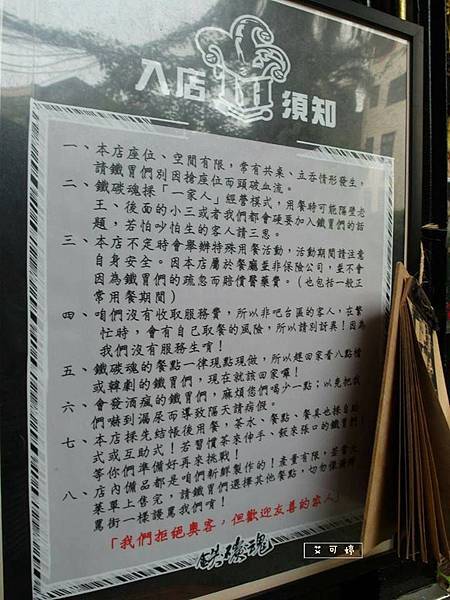 入店 須知
一、本店座位、空間有限，常有共桌、立吞情形發生，
請鐵胃們別因搶座位而頭破血流。
二、鐵碳魂採「一家人」經營模式，用餐時可能隔壁老
王、後面的小三或者我們都會硬要加入鐵胃們的話
題，若怕吵怕生的客人請三思。
三、本店不定時會舉辦特殊用餐活動，活動期間請注意
自身安全。因本店屬於餐廳並非保險公司，並不會
因為鐵胃們的疏忽而賠償醫藥費。（也包括一般正
常用餐期間）
四、咱們沒有收取服務費，所以非吧台區的客人，在繁
忙時，會有自己取餐的風險，所以請別訝異！因為
我們沒有服務生唷！
五、鐵碳魂的餐點一律現點現做，所以趕回家看八點檔
或韓劇的鐵胃們，現在就該回家囉！
六、會發酒瘋的鐵胃們，麻煩您們喝少一點；以免把我
們嚇到漏尿而導致隔天請病假。
七、本店採先結帳後用餐，茶水、餐點、餐具也採自助
式或互助式！若習慣茶來伸手、飯來張口的鐵胃們
等你們準備好再來挑戰！
八、店內備品都是咱們新鮮製作的！產量有限，若當天
菜單上售完，請鐵胃們選擇其他餐點，切勿像潑婦
罵街一樣謾罵我們唷！
「我們拒絕奧客，但歡迎友善的家人」
艾可婷